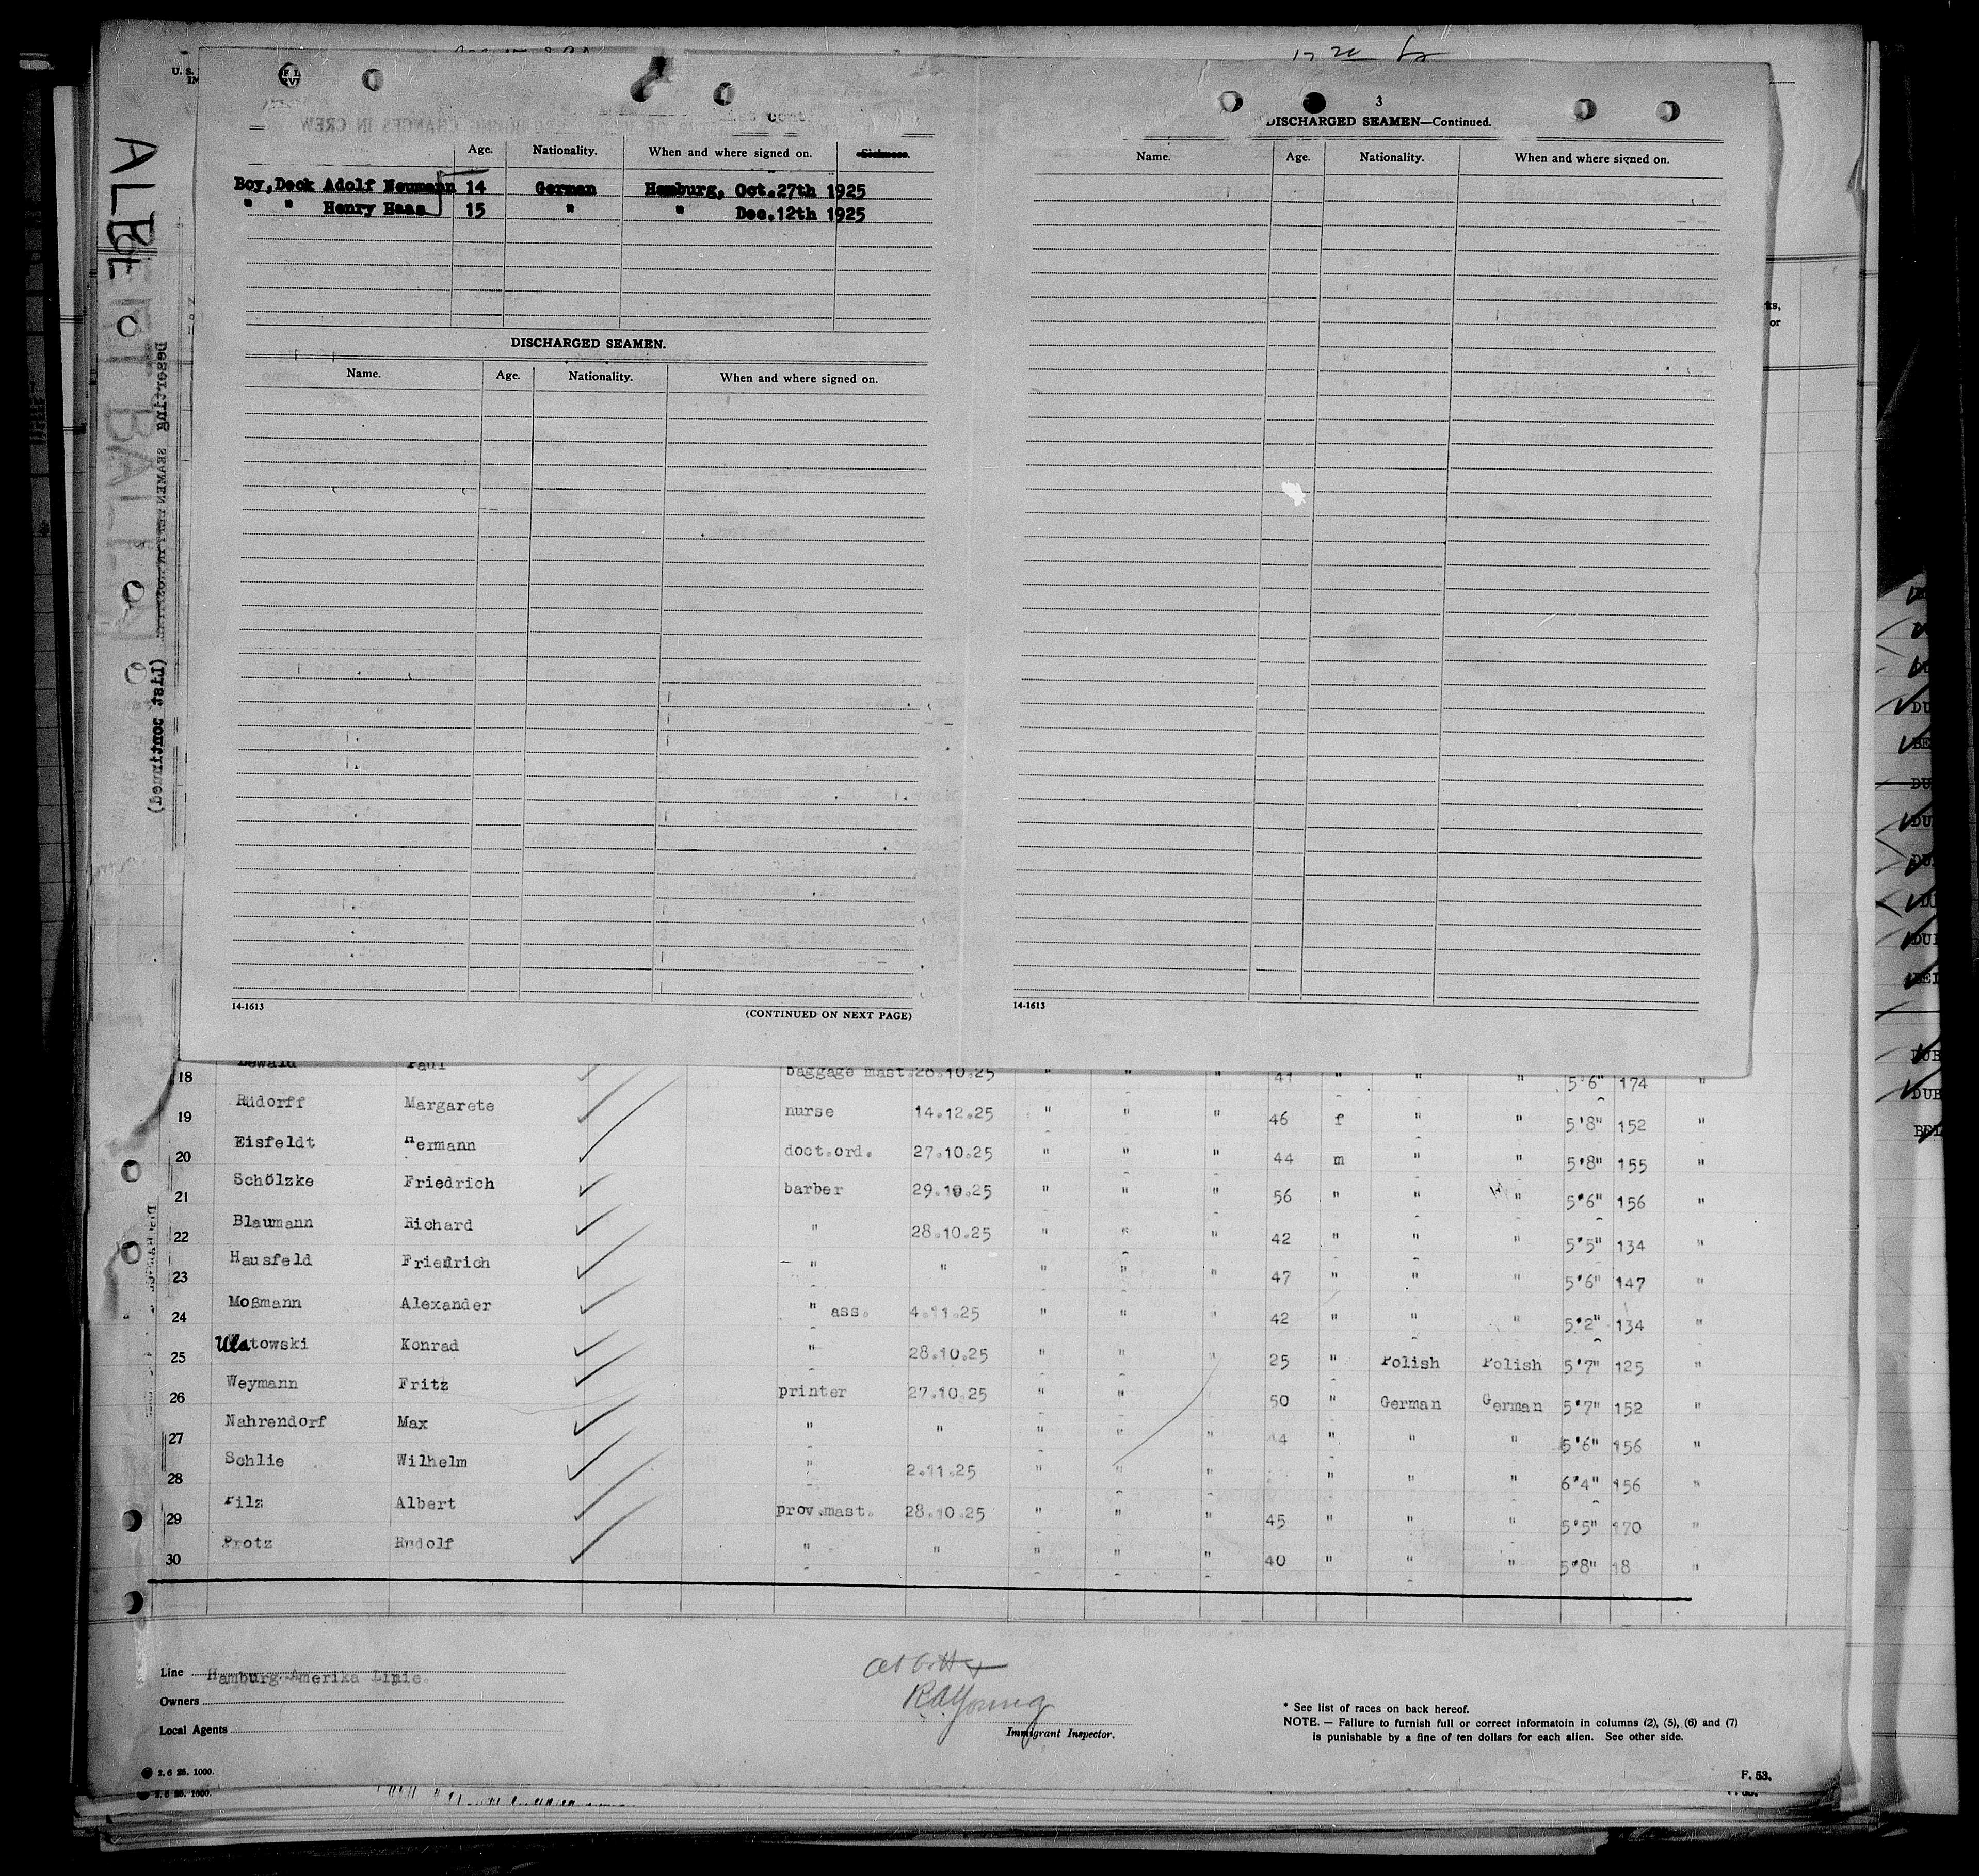 U. S.
ALBERT BALLIN
(list continued)
cont.
Age. Nationality. When and where signed on. Sickness.
Boy, Deck Adolf Neumann 14 German Hamburg, Oct.27th 1925
" " Henry Haas 15 " " Dec.12th 1925
DISCHARGED SEAMEN.
Name. Age. Nationality. When and where signed on.
14-1613
(CONTINUED ON NEXT PAGE)
3
DISCHARGED SEAMEN—Continued.
Name. Age. Nationality. When and where signed on.
14-1613
18 Dewald Paul baggage mast. 28.10.25 " " " 41 " " " 5'6" 174 "
19 Rüdorff Margarete nurse 14.12.25 " " " 46 f " " 5'8" 152 "
20 Eisfeldt Hermann doct.ord. 27.10.25 " " " 44 m " " 5'8" 155 "
21 Schölzke Friedrich barber 29.10.25 " " " 56 " " " 5'6" 156 "
22 Blaumann Richard " 28.10.25 " " " 42 " " " 5'5" 134 "
23 Hausfeld Friedrich " " " " " 47 " " " 5'6" 147 "
24 Moßmann Alexander " ass. 4.11.25 " " " 42 " " " 5'2" 134 "
25 Ulatowski Konrad " 28.10.25 " " " 25 " Polish Polish 5'7" 125 "
26 Weymann Fritz printer 27.10.25 " " 50 " German German 5'7" 152 "
27 Nahrendorf Max " " " " " 44 " " " 5'6" 156 "
28 Schlie Wilhelm " 2.11.25 " " " " " 6'4" 156 "
29 Pilz Albert prov.mast. 28.10.25 " " " 45 " " " 5'5" 170 "
30 Protz Rudolf " " " " " 40 " " " 5'8" 18 "
Line Hamburg-Amerika Linie.
Owners
Local Agents
R.A. Young
Immigrant Inspector.
* See list of races on back hereof.
NOTE. — Failure to furnish full or correct informatoin in columns (2), (5), (6) and (7)
is punishable by a fine of ten dollars for each alien. See other side.
2. 6 25. 1000.
F. 53.
2. 6 25. 1000.